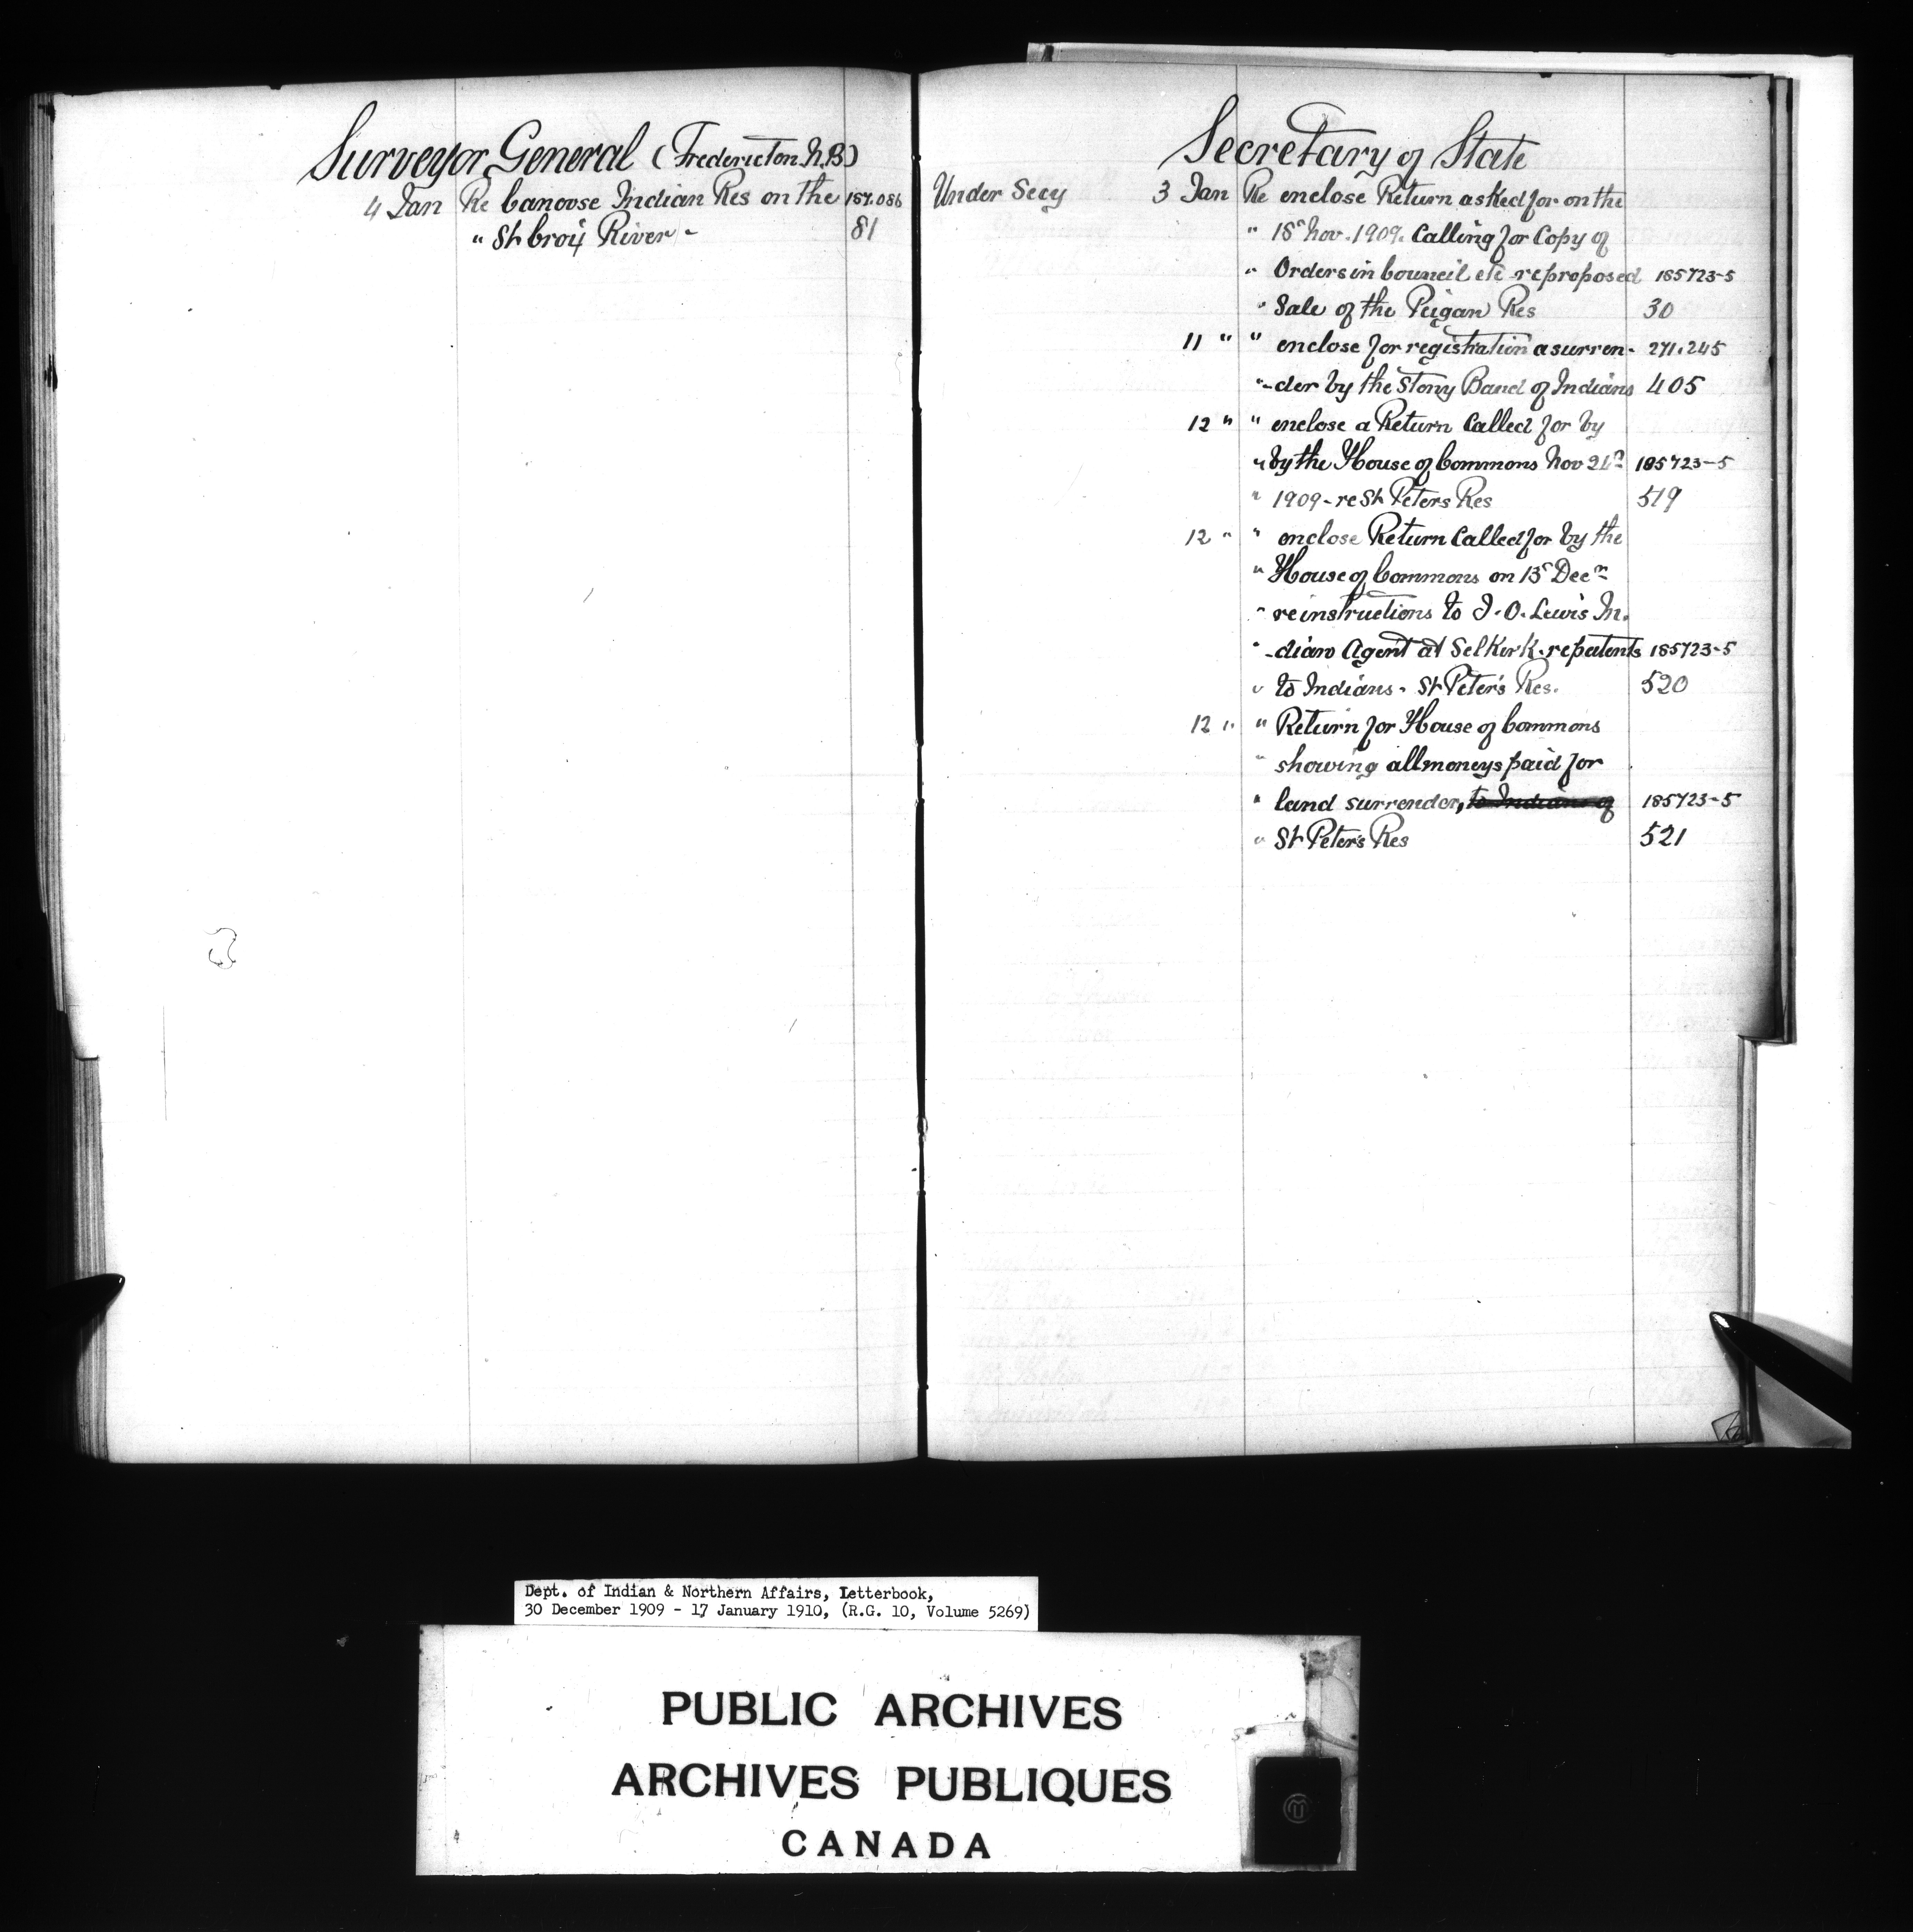 Surveyor General (Fredericton. N.B.)
4 Jan Re Canoose Indian Res on the 187.086
" St Croix River - 81
Secretary of State
Under Secy 3 Jan Re enclose Return asked for on the
" 18th Nov. 1909. Calling for Copy of
" Orders in Council etc re proposed 185723-5
" Sale of the Peigan Res 30
11 " " enclose for registration a surren- 271.245
" -der by the Stony Band of Indians 405
12 " " enclose a Return Called for by
" by the House of Commons Nov 185723-5
" 1909 - re St Peters Res 519
12 " " enclose Return Called for by the
" House of Commons on 13th Decr
" re instructions to J. O. Lewis In.
" -dian Agent at Selkirk. re patents 185723-5
" to Indians. St Peter's Res. 520
12 " " Return for House of Commons
" showing all moneys paid for
" land surrender, to Indians of 185723-5
" St Peter's Res 521
Dept. of Indian & Northern Affairs, Letterbook,
30 December 1909 - 17 January 1910, (R.G. 10, Volume 5269)
PUBLIC ARCHIVES
ARCHIVES PUBLIQUES
CANADA